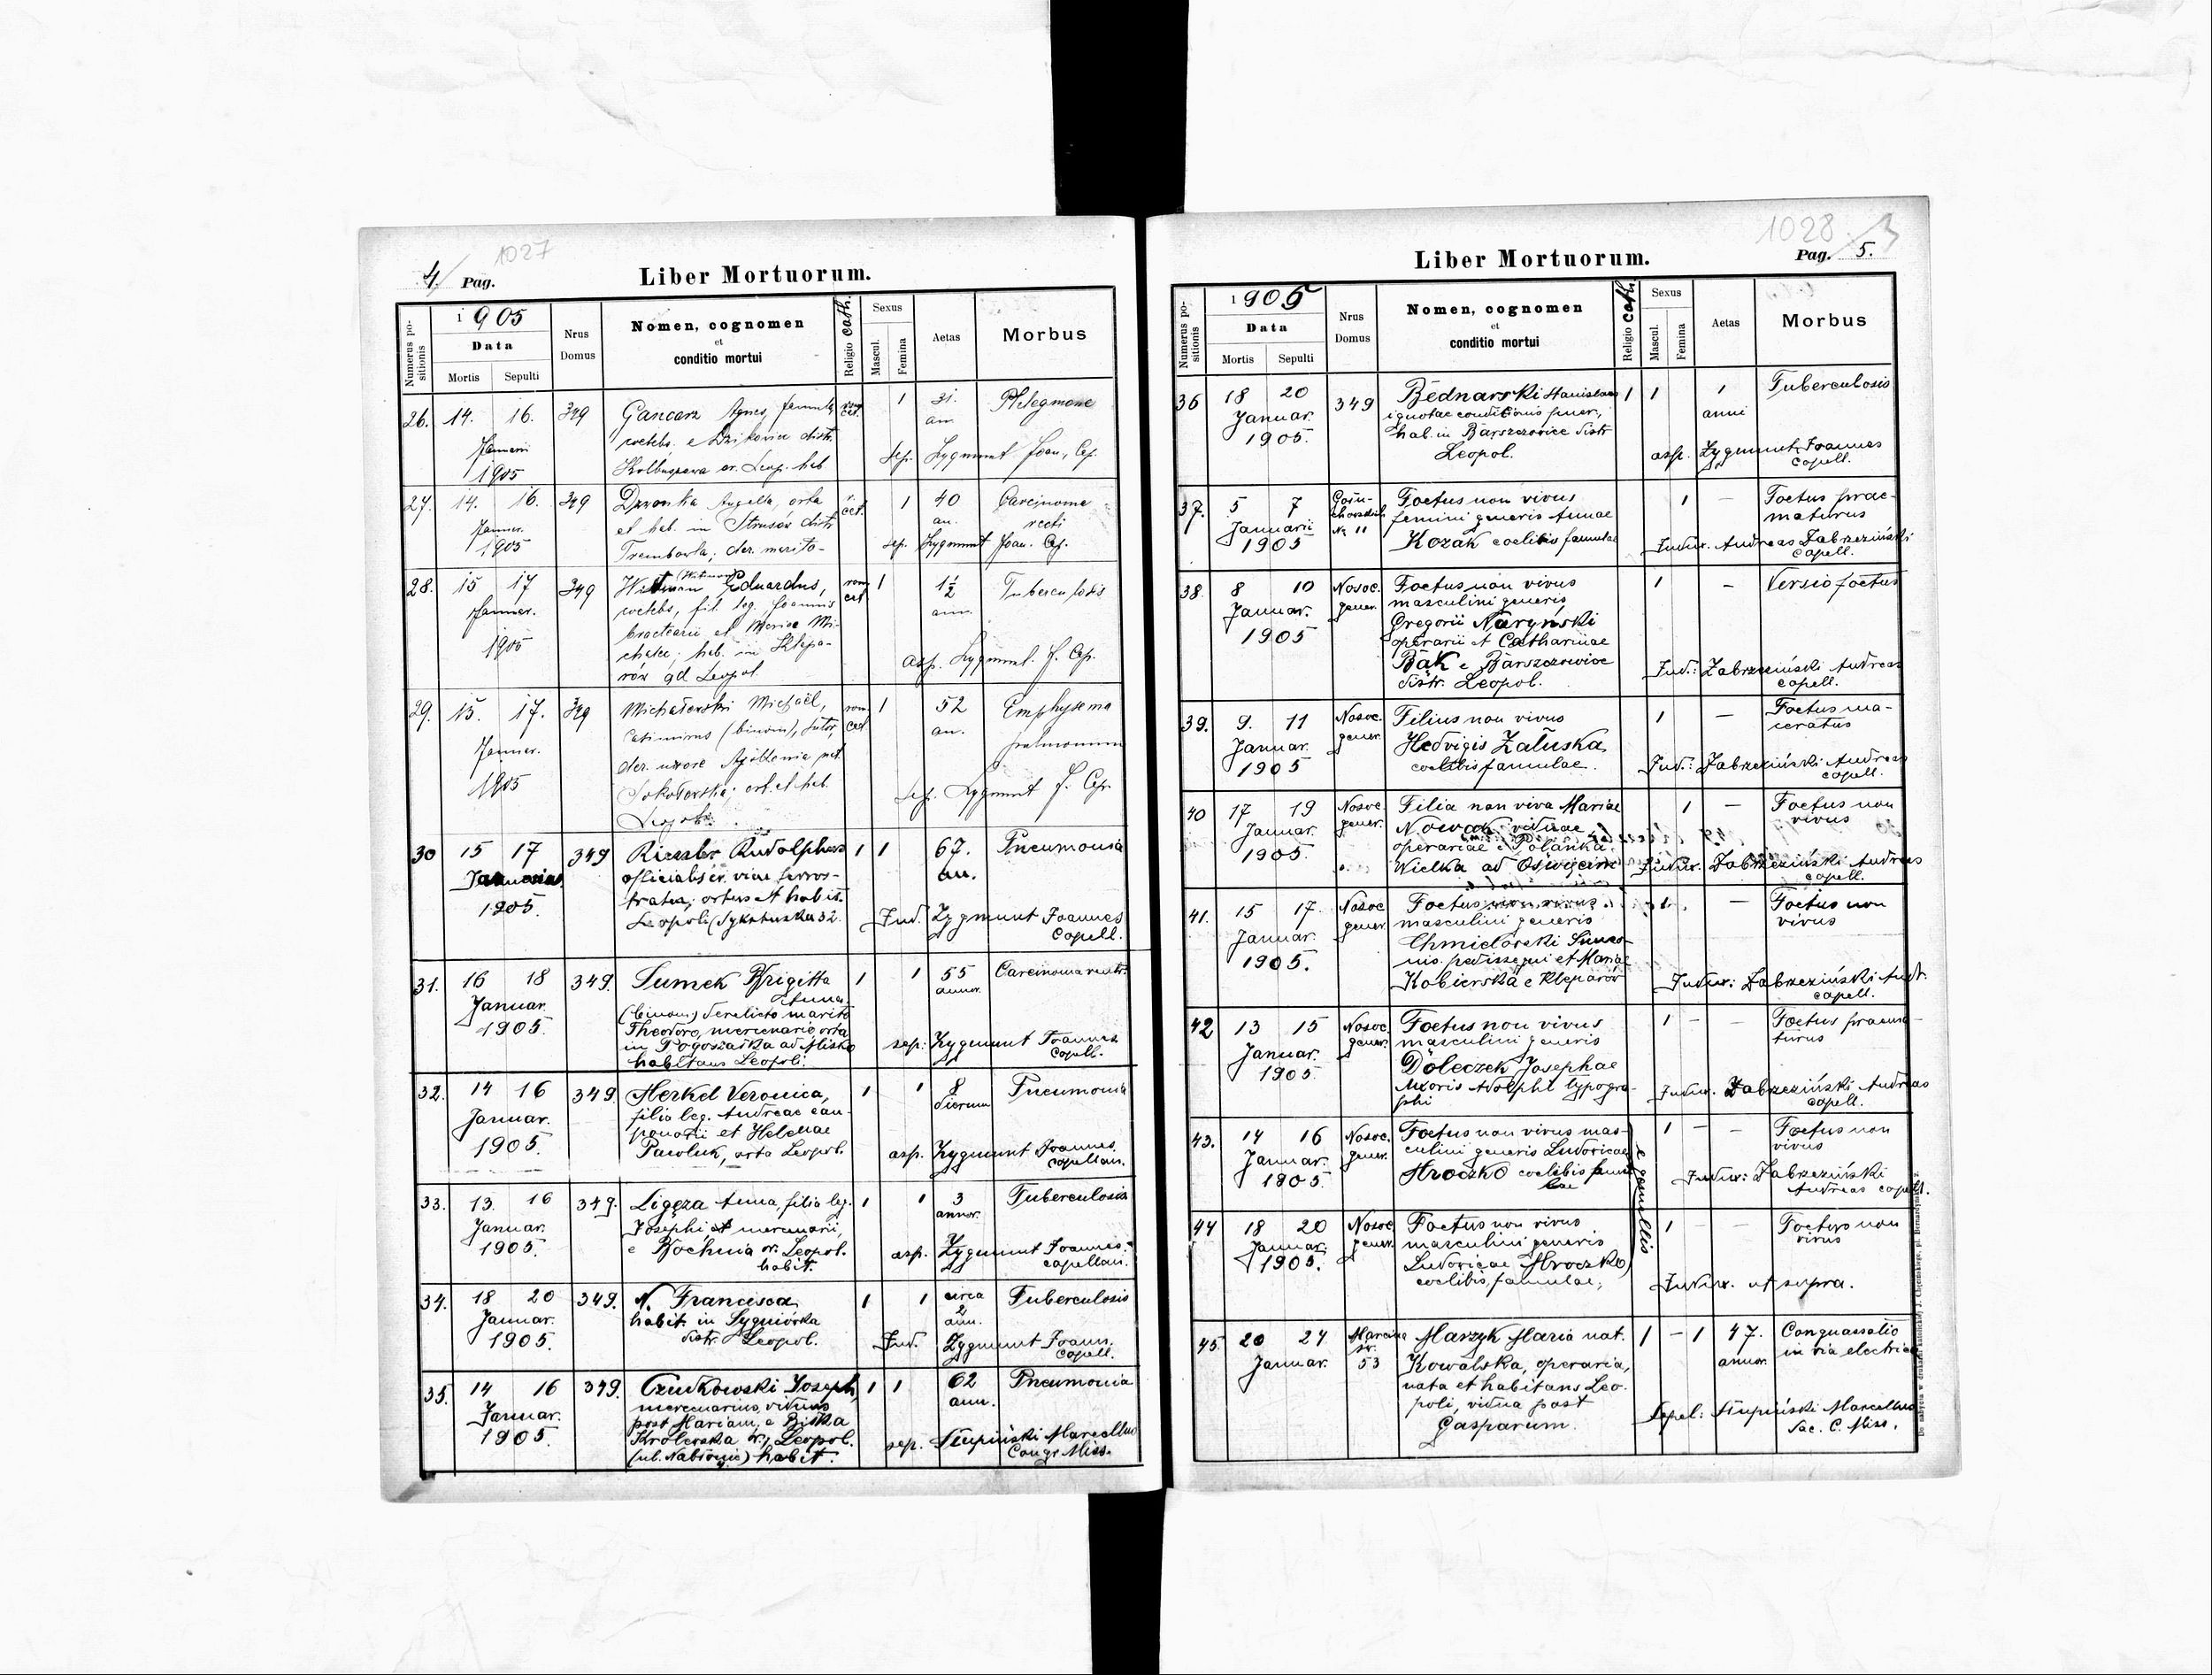 1027
4/ Pag.
Liber Mortuorum.
Numerus positionis
1905
Data
Mortis Sepulti
Nrus Domus
Nomen, cognomen
et
conditio mortui
Religio cath.
Sexus
Mascul. Femina
Aetas
Morbus
26. 14. 16. 349 Gancarz Agnes, famula rom. cat. 1 31. Phlegmone
Januarii coelebs. e Dzikowiec distr. an.
1905 Kolbuszowa or. Leop. hab. sep. Zygmunt Joan., Cap.
27. 14. 16. 349 Dzwonka Angella, orta r. cat. 1 40 Carcinoma
Januar. et hab. in Strusów distr. an. recti
1905 Trembowla; der. marito- sep. Zygmunt Joan. Cap.
28. 15 17 349 Witman (Witman) Eduardus, rom. cat. 1 1½ Tuberculosis
Januar. coelebs, fil. leg. Joannis ann.
1905 bractearii et Mariae Mi-
chalec; hab. in Klepa-
rów ad Leopol. asp. Zygmunt. J. Cap.
29. 15. 17. 349 Michalewski Michaël, rom. cat. 1 52 Emphysema
Januar. Casimirus (binom), sutor, an. pulmonum
1905 der. uxore Apollonia nat.
Sokołowska; ort. et hab.
Leopoli. sep. Zygmunt J. Cap.
30 15 17 349 Rudolphus 1 1 67. Pneumonia
Januaris officialis er. viae ferros- an.
1905. tratae; ortus et habit.
Leopoli (Sykstuska 32. Ind. Zygmunt Joannes
Capell.
31. 16 18 349. Sumek Brigitta 1 1 55 Carcinoma ventr.
Januar. Anna annor.
1905. (binom) derelicto marito
Theodoro, mercenario, orta
in ad Nisko sep: Zygmunt Joannes
habitans Leopoli. Capell.
32. 14 16 349. Herkel Veronica, 1 1 8 Pneumonia
Januar. filia leg. Andreae cau- dierum
1905. ponarii et Helenae
Pawluk, orta Leopol. asp. Zygmunt Joannes
capellan.
33. 13. 16 349. Ligęza Anna, filia leg. 1 1 3 Tuberculosis
Januar. Josephi et mercenarii, annor.
1905. e Bochnia or. Leopol. asp. Zygmunt Joannes
habit. capellan.
34. 18 20 349. N. Francisca 1 1 circa Tuberculosis
Januar. habit. in Sygniówka 2 ann.
1905. distr. Leopol. Ind. Zygmunt Joann.
Capell.
35. 14 16 349. Czudkowski Joseph, 1 1 62 Pneumonia
Januar. mercenarius, viduus ann.
1905. post Mariam, e Biłka
Krolewska or., Leopol. sep. Słupiński Marcellus
(ul. Nabionie) habit. Congr Miss.
1028
Liber Mortuorum.
Pag. 5.
Numerus positionis
1905
Data
Mortis Sepulti
Nrus Domus
Nomen, cognomen
et
conditio mortui
Religio cath.
Sexus
Mascul. Femina
Aetas
Morbus
36 18 20 349 Bednarski Stanislaus 1 1 1 Tuberculosis
Januar. ignotae conditionis puer, anni
1905. hab. in Barszczowice distr
Leopol. asp. Zygmunt Joannes
Capell.
37. 5 7 No 11 Foetus non vivus 1 — Foetus prae-
Januarii femini generis Annae maturus
1905 Kozak coelibis famulae Indux. Andreas Zabrzeziński
Capell.
38. 8 10 Nosoc. gener. Foetus non vivus 1 — Versio foetus
Januar. masculini generis
1905 Gregorii Naryński
operarii et Catharinae
Bąk e Barszczowice Ind.: Zabrzeziński Andreas
distr. Leopol. capell.
39. 9. 11 Nosoc. gener. Filius non vivus 1 — Foetus ma-
Januar. Hedvigis Załuska ceratus
1905 coelibis famulae. Ind.: Zabrzeziński Andreas
capell.
40 17 19 Nosoc. gener. Filia non viva Mariae 1 — Foetus non
Januar. Nowak viduae, vivus
1905. operariae e Polanka
Wielka ad Oświęcim Indux. Zabrzeziński Andreas
capell.
41. 15 17. Nosoc gener. Foetus non vivus 1. — Foetus non
Januar. masculini generis vivus
1905. Chmielowski Simeo-
nis pedissequi et Mariae
Kobierska e Kleparów Indux: Zabrzeziński Andr.
capell.
42 13 15 Nosoc. gener. Foetus non vivus 1 — — Foetus praema-
Januar. masculini generis turus
1905 Doleczek Josephae
uxoris Adolphi typogra- Indux. Zabrzeziński Andreas
phi capell.
43. 14 16 Nosoc. gener. Foetus non vivus mas- 1 — — Foetus non
Januar. culini generis Ludovicae vivus
1905. Hroczko coelibis famu- Indux: Zabrzeziński
lae Andreas capell.
e gemellis
44 18 20 Nosoc gener. Foetus non vivus 1 — — Foetus non
Januar. masculini generis vivus
1905. Ludovicae Hroczko
coelibis, famulae, Indux. ut supra.
45. 20 24 Marcina św. 53 Marzyk Maria nat. 1 — 1 47. Conquassatio
Januar. Kowalska, operaria, annor. in via electrica
nata et habitans Leo-
poli, vidua post Sepel: Słupiński Marcellus
Gasparum. Sac. C. Miss.